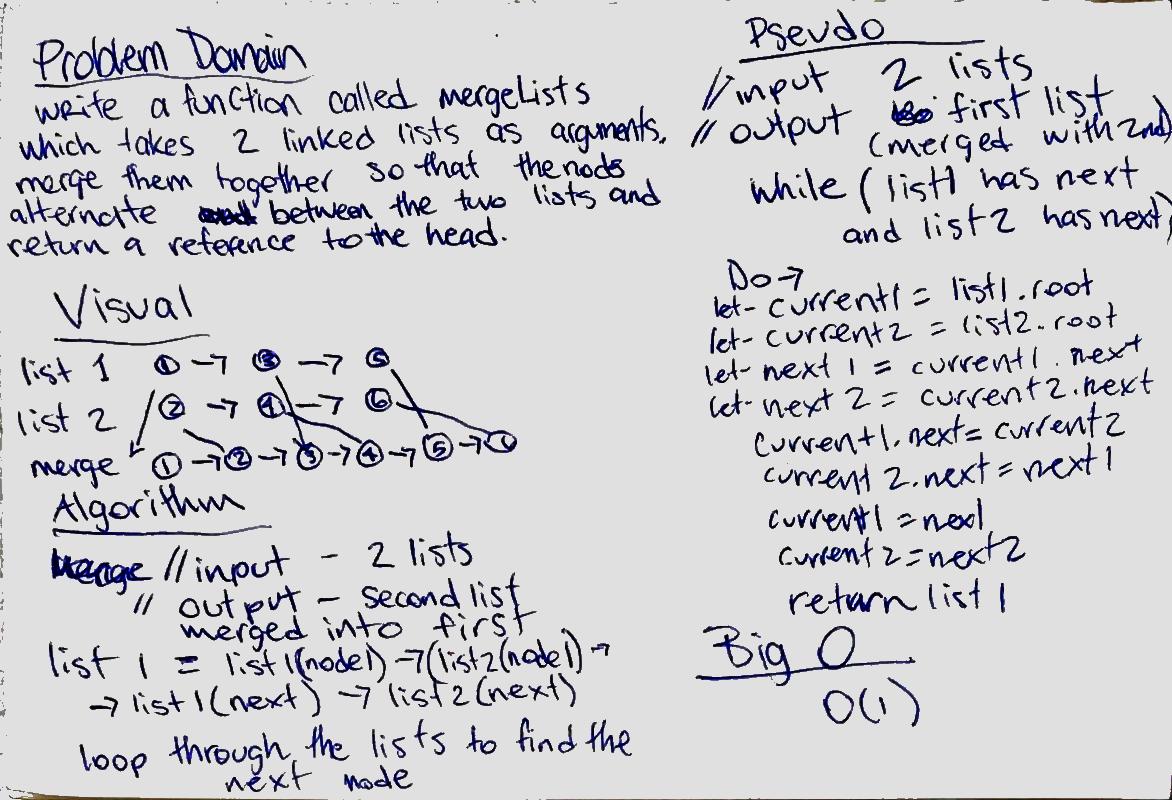 Problem Domain
write a function called mergeLists
which takes 2 linked lists as arguments.
merge them together so that the nods
alternate between the two lists and
return a reference to the head.
Visual
list 1 ① → ③ → ⑤
list 2 ② → ④ → ⑥
merge ① → ② → ③ → ④ → ⑤ →
Algorithm
Merge // input - 2 lists
// output - second list
merged into first
list 1 = list 1(node1) → (list2(node1) →
→ list 1(next) → list 2(next)
loop through the lists to find the
next node
Pseudo
// input 2 lists
// output first list
(merged with 2nd)
while (list1 has next
and list 2 has next)
Do →
let current1 = list1.root
let current2 = list2.root
let next 1 = current1.next
let next 2 = current2.next
current1.next = current2
current 2.next = next1
current1 = nex1
current 2 = next2
return list 1
Big O
O(1)